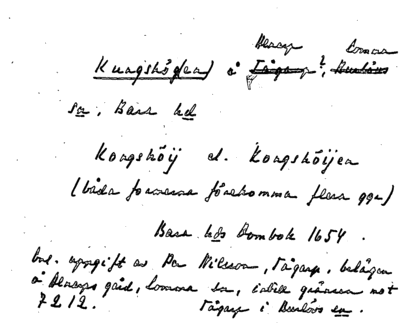 Alnarp Lomma
Kungshögen å Tågarp?, Burlövs
sn, Bara hd
Kongshöij el. Kongshöijen
(båda formerna förekomma flera ggr)
Bara hds Dombok 1654.
enl. uppgift av Per Nilsson, Tågarp, belägen
å Alnarps gård, Lomma sn, intill gränsen mot
7212. Tågarp i Burlövs sn.